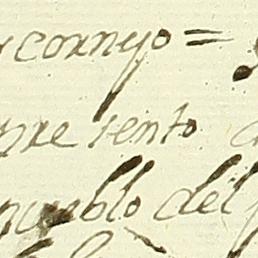 cornejo =
presento
pueblo del